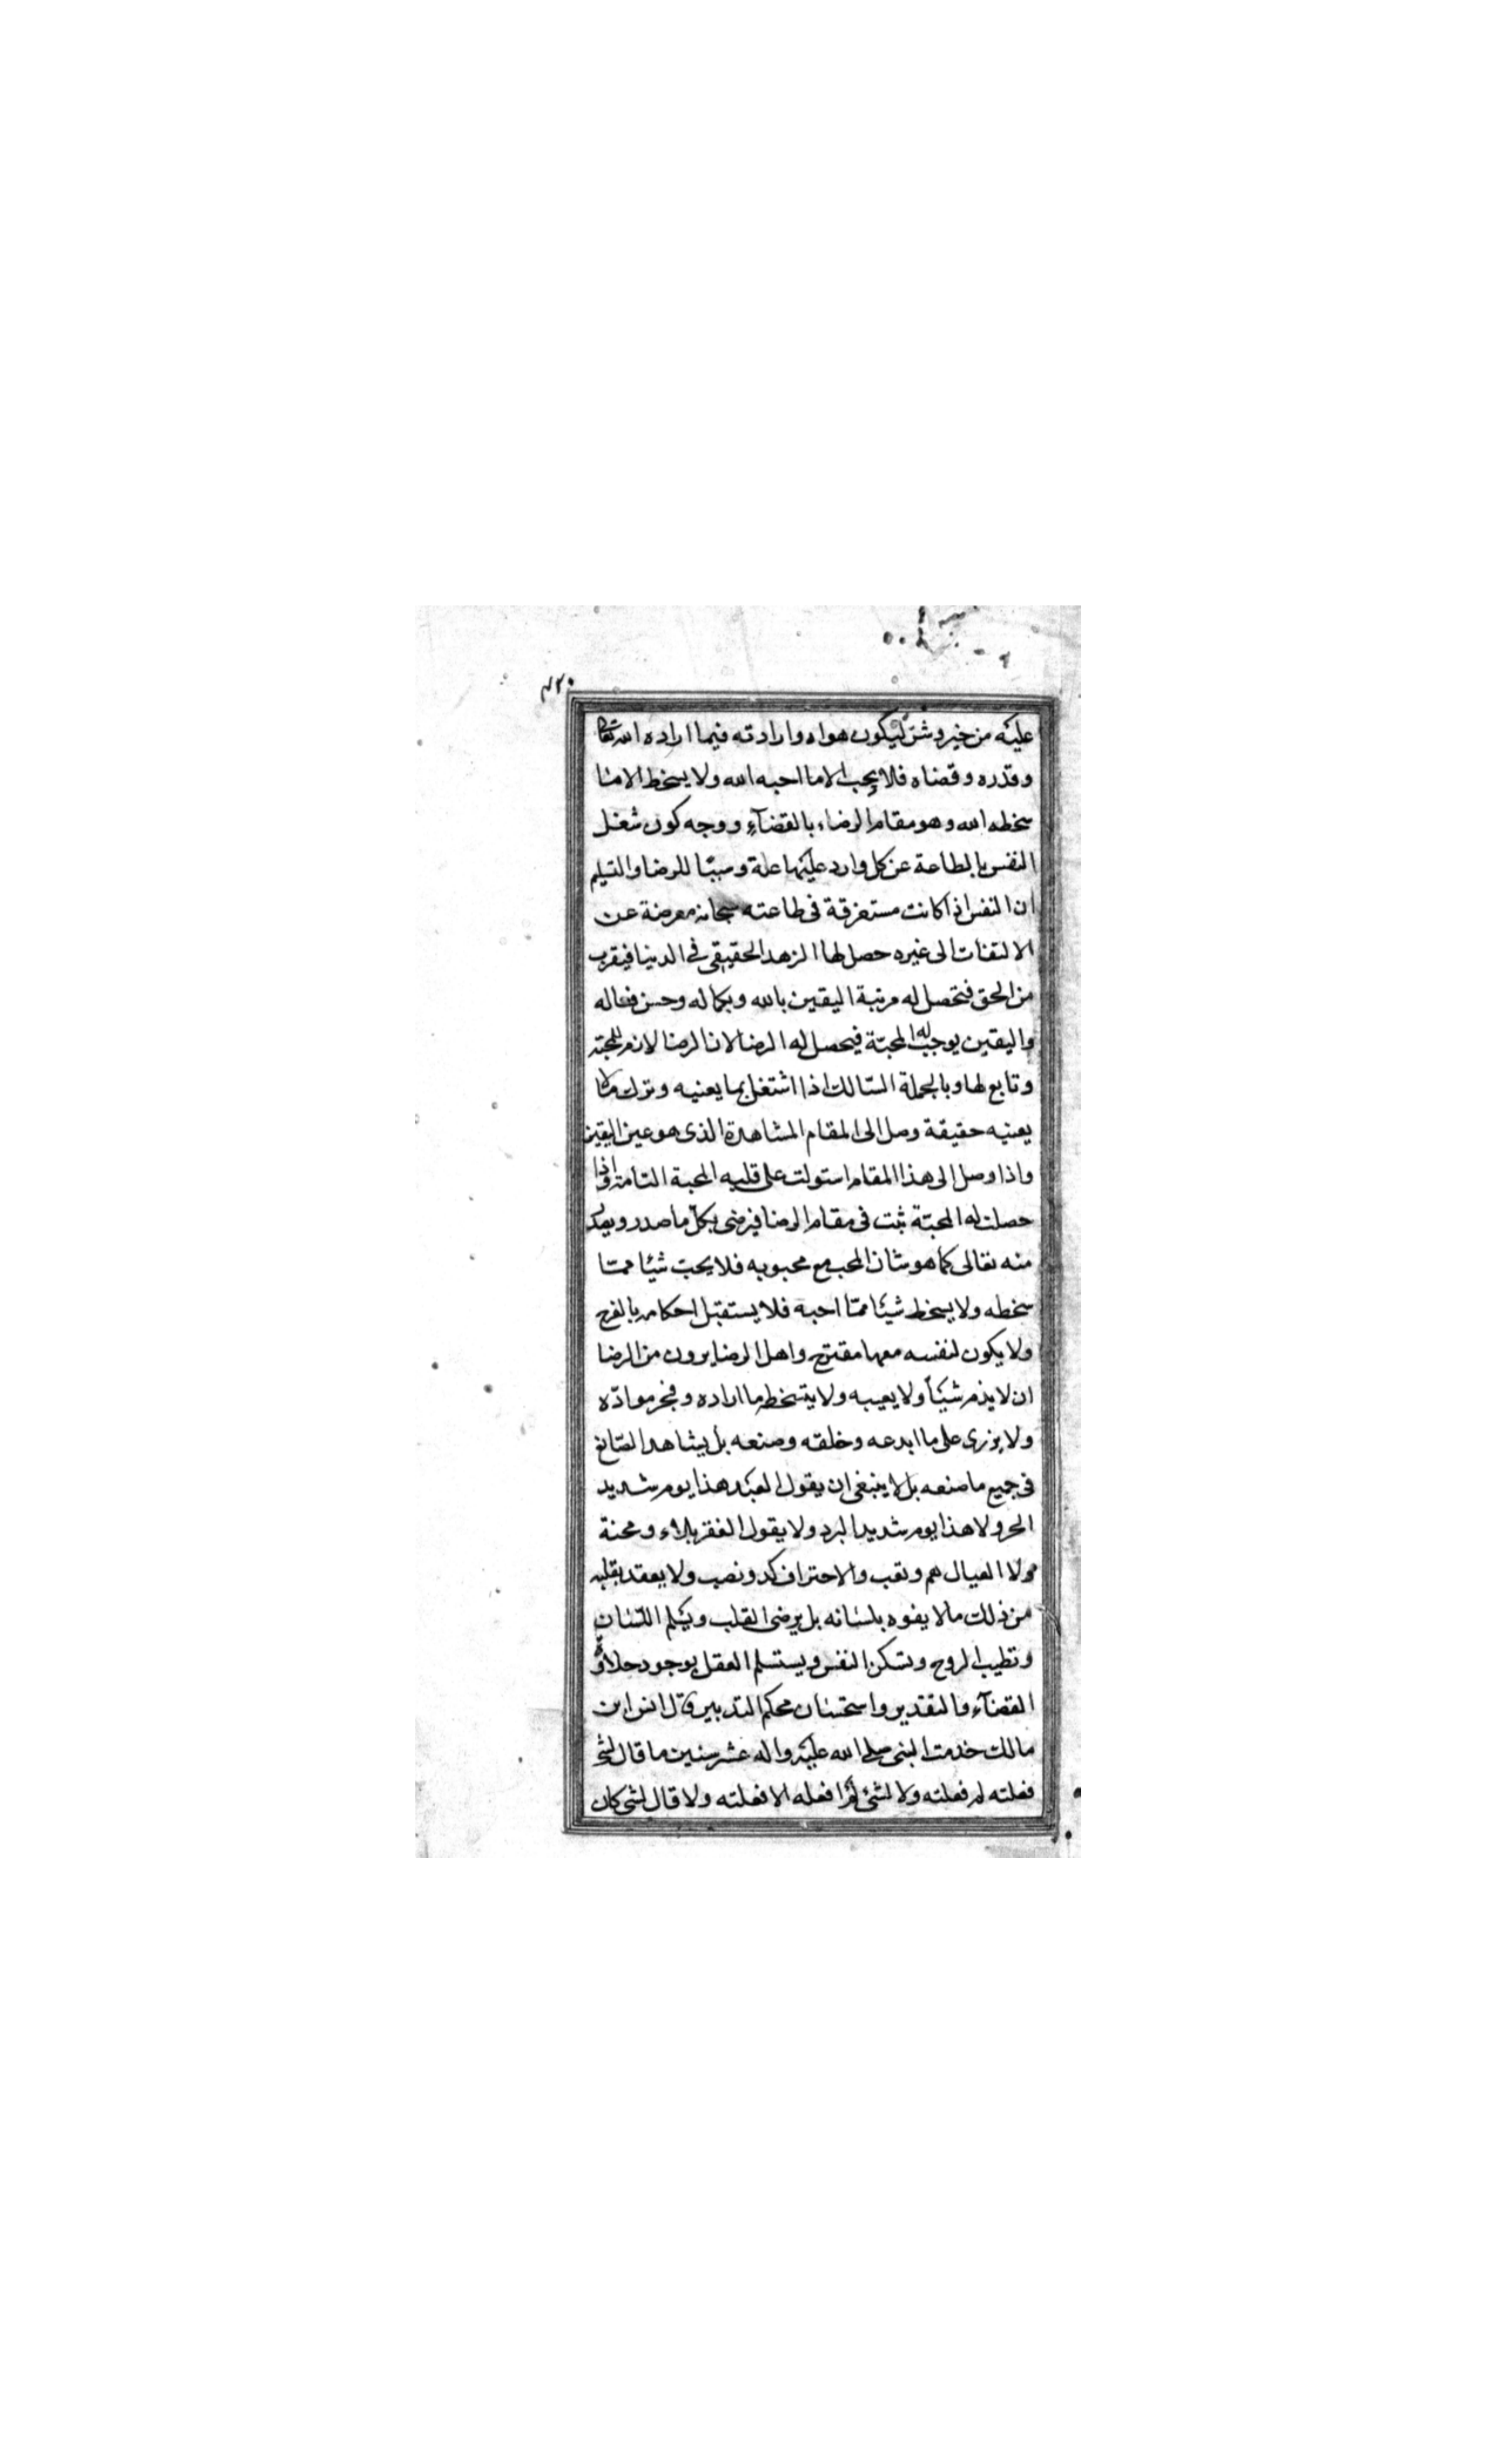 ۴۲۰
عليه من خير وشر ليكون هواه وارادته فيما اراده الله تعالى
وقدره وقضاه فلا يحب الا ما احبه الله ولا يسخط الا ما
سخطه الله وهو مقام الرضاء بالقضآء ووجه كون شغل
النفس بالطاعة عن كل وارد عليها علة وسببًا للرضا والتسليم
ان النفس اذا كانت مستغرقة فى طاعته سبحانه معرضة عن
الالتفات الى غيره حصل لها الزهد الحقيقى فى الدنيا فيقرب
من الحق فتحصل له مرتبة اليقين بالله وبكماله وحسن فعاله
واليقين يوجب له المحبّة فيحصل له الرضا لان الرضا لازم للمحبّة
وتابع لها وبالجملة السّالك اذا اشتغل بما يعنيه وترك ما لا
يعنيه حقيقة وصل الى المقام المشاهدة الذى هو عين اليقين
واذا وصل الى هذا المقام استولت على قلبه المحبة التامة واذا
حصلت له المحبّة ثبت فى مقام الرضا فيرضى بكلّ ما صدر ويصدر
منه تعالى كما هو شان المحب مع محبوبه فلا يحبّ شيئا ممّا
سخطه ولا يسخط شيئًا ممّا احبه فلا يستقبل احكامه بالفرح
ولا يكون لنفسه معها مقترح واهل الرضا يرون من الرضا
ان لا يذم شيئًا ولا يعيبه ولا يتسخط ما اراده مولاه
ولا يزرى على ما ابدعه وخلقه وصنعه بل يشاهد الصّانع
فى جميع ما صنعه بل لا ينبغى ان يقول العبد هذا يوم شديد
الحر ولا هذا يوم شديد البرد ولا يقول الفقر بلاء ومحنة
ولا العيال هم وتعب والاحتراف كد ونصب ولا يعقد بقلبه
من ذلك ما لا يفوه بلسانه بل يرضى القلب ويسلم اللّسان
وتطيب الروح وتسكن النفس ويستسلم العقل بوجود حلاوة
القضآء والتقدير واستحسان محكم التدبير قال انس ابن
مالك خدمت النبى صلى الله عليه واله عشر سنين ما قال لشئ
فعلته لم فعلته ولا لشئ لم افعله الا فعلته ولا قال لشئ كان